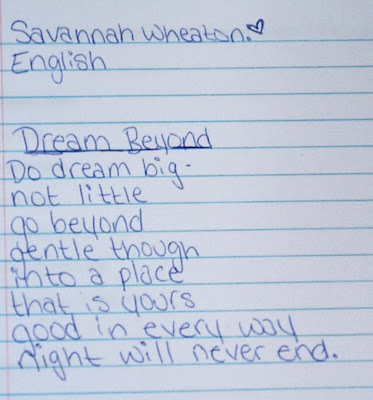 Savannah Wheaton.♡
English
Dream Beyond
Do dream big-
not little
go beyond
gentle though
into a place
that is yours
good in every way
Night will never end.